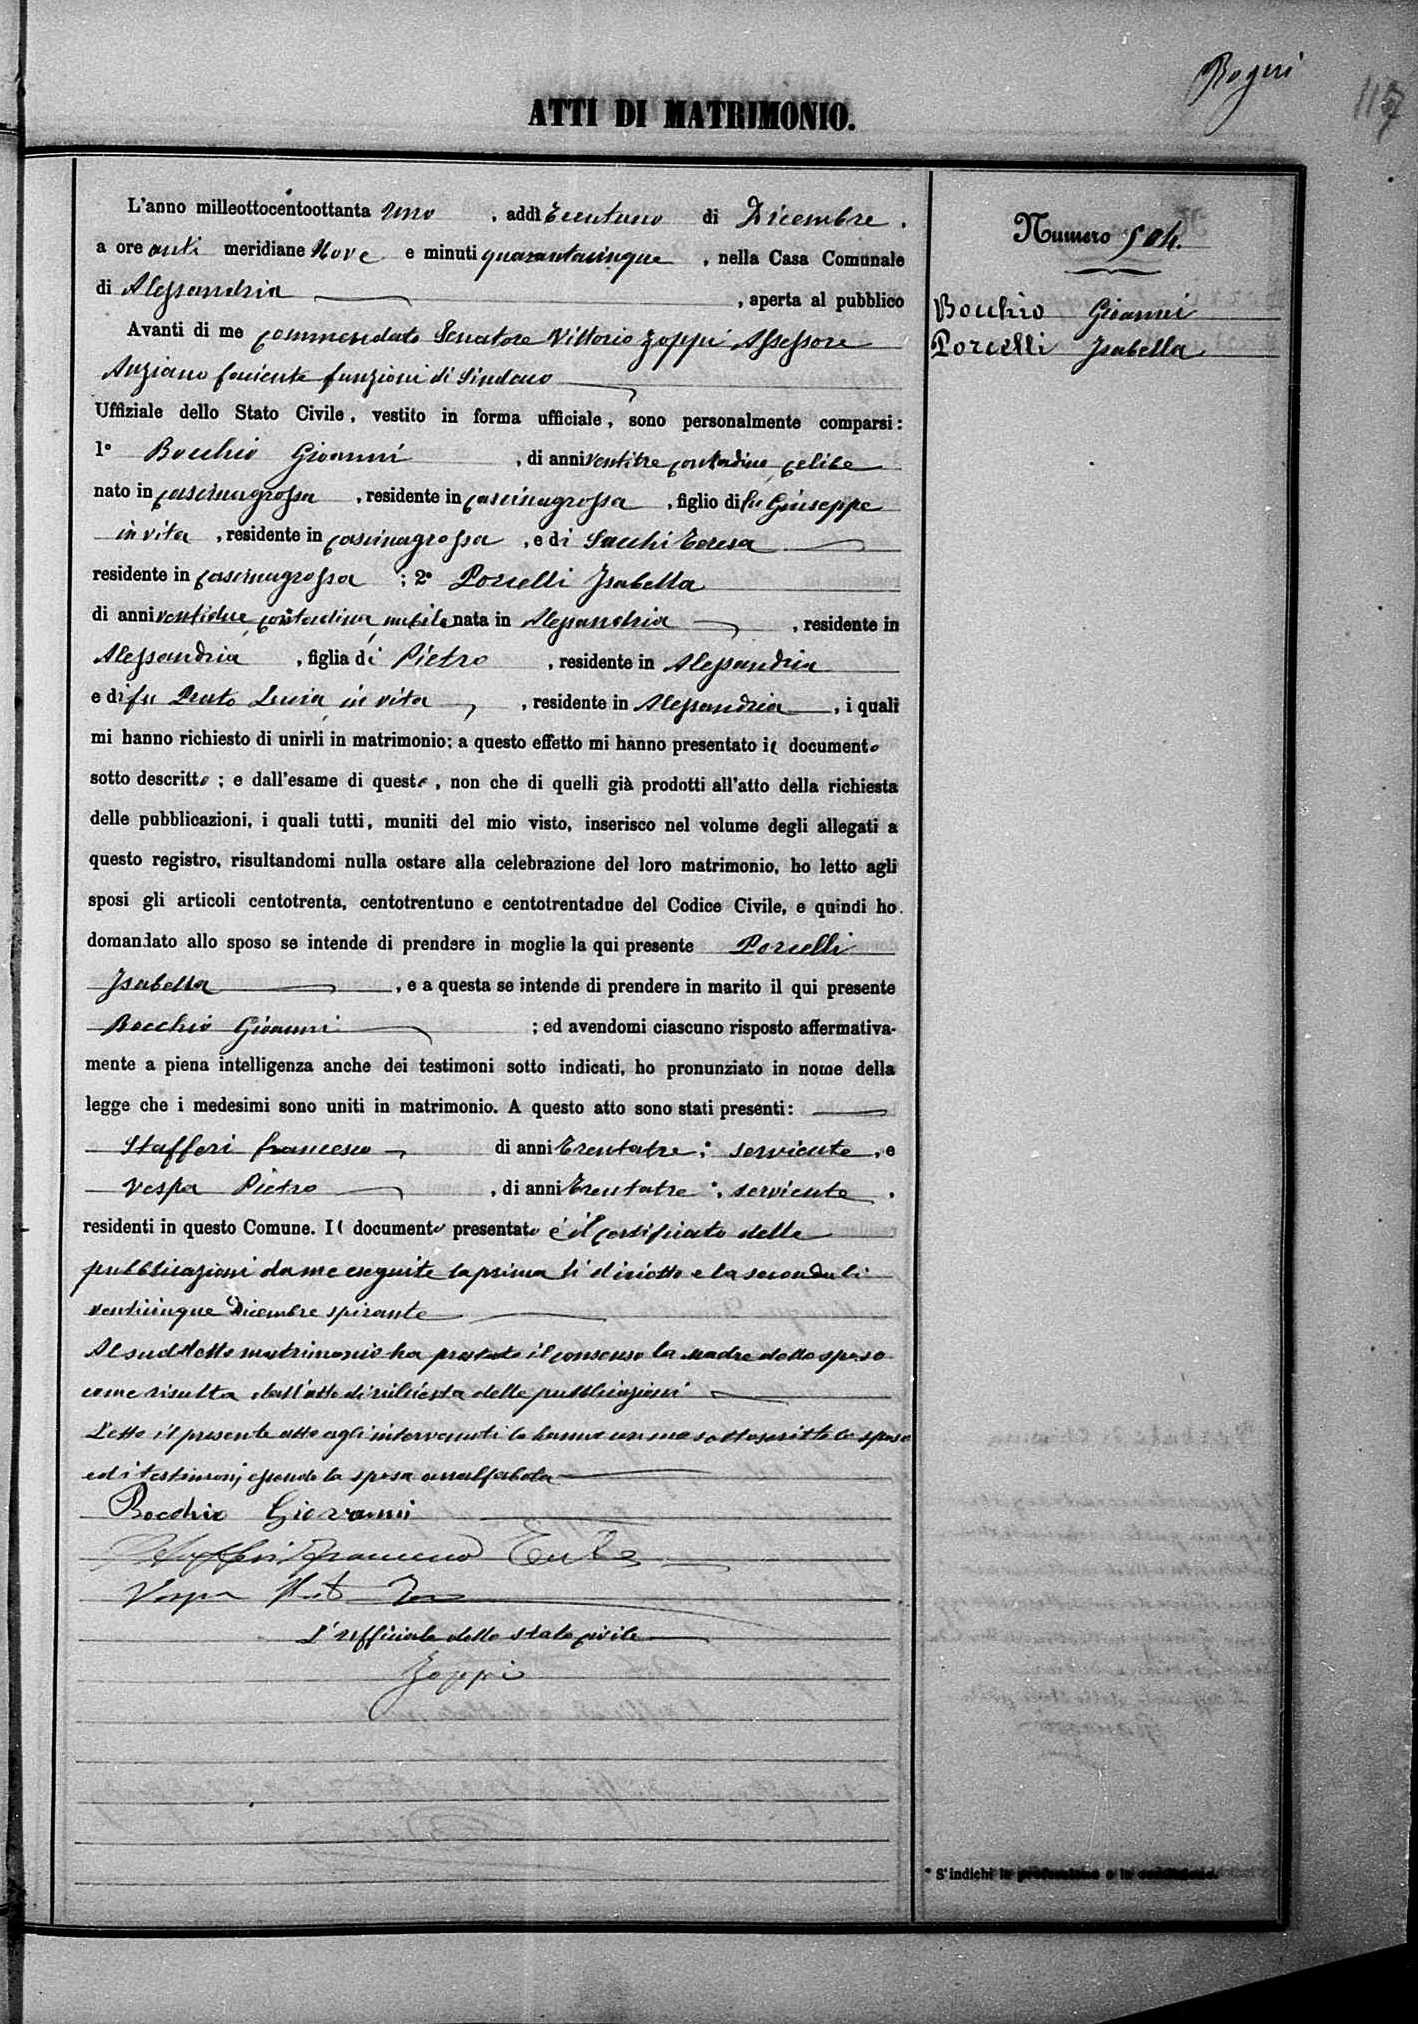 Rogeri
117
ATTI DI MATRIMONIO.
L'anno milleottocentoottanta Uno , addì Trentuno di Dicembre ,
a ore anti meridiane Nove e minuti quarantacinque , nella Casa Comunale
di Alessandria , aperta al pubblico
Avanti di me Commendato Senatore Vittorio Zoppi Assessore
Anziano faciente funzioni di Sindaco
Uffiziale dello Stato Civile, vestito in forma ufficiale, sono personalmente comparsi:
1° Bocchio Gioanni , di anni ventitre contadino celibe
nato in Cascinagrossa , residente in Cascinagrossa , figlio di fu Giuseppe
in vita , residente in Cascinagrossa , e di Sacchi Teresa
residente in Cascinagrossa ; 2° Porcelli Isabella
di anni ventidue, contadina, nubile nata in Alessandria , residente in
Alessandria , figlia di Pietro , residente in Alessandria
e di fu Prato Lucia, in vita , residente in Alessandria , i quali
mi hanno richiesto di unirli in matrimonio; a questo effetto mi hanno presentato il documento
sotto descritto ; e dall'esame di questo , non che di quelli già prodotti all'atto della richiesta
delle pubblicazioni, i quali tutti, muniti del mio visto, inserisco nel volume degli allegati a
questo registro, risultandomi nulla ostare alla celebrazione del loro matrimonio, ho letto agli
sposi gli articoli centotrenta, centotrentuno e centotrentadue del Codice Civile, e quindi ho
domandato allo sposo se intende di prendere in moglie la qui presente Porcelli
Isabella , e a questa se intende di prendere in marito il qui presente
Bocchio Gioanni ; ed avendomi ciascuno risposto affermativa-
mente a piena intelligenza anche dei testimoni sotto indicati, ho pronunziato in nome della
legge che i medesimi sono uniti in matrimonio. A questo atto sono stati presenti:
Stafferi Francesco di anni Trentatre ; serviente , e
Vespa Pietro , di anni Trentatre , serviente ,
residenti in questo Comune. Il documento presentato è il certificato delle
pubblicazioni da me eseguite la prima li diciotto e la seconda li
venticinque Dicembre spirante
Al suddetto matrimonio ha prestato il consenso la madre dello sposo
come risulta dall'atto di richiesta delle pubblicazioni
Letto il presente atto agli intervenuti lo hanno con me sottoscritto lo sposo
ed i testimonj essendo la sposa analfabeta
Bocchio Giovanni
Stafferi Francesco Teste
Vespa
L'uffiziale dello stato civile
Zoppi
Numero 504.
Bocchio Gioanni
Porcelli Isabella
* S'indichi la professione o la condizione.